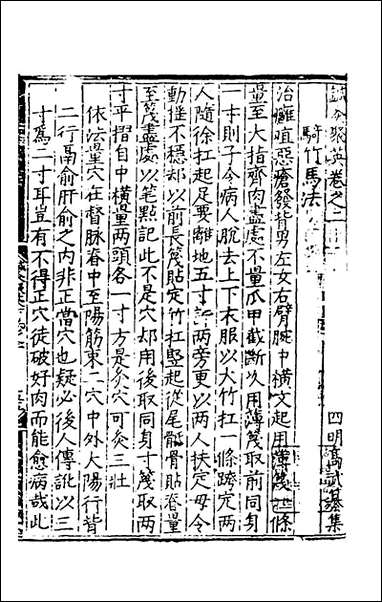 針灸聚英卷之二
四明高武纂集
騎竹馬法
治癰疽惡瘡發背男左女右臂腕中橫文起用薄篾一條
量至大指齊肉盡處不量爪甲截斷次用薄篾取前同身
一寸則子令病人脫去上下衣服以大竹扛一條跨定兩
人隨徐扛起足要離地五寸許兩旁更以兩人扶定毋令
動搖不穩却以前長篾貼定竹扛竪起從尾骶骨貼脊量
至篾盡處以筆點記此不是穴却用後取同身寸篾取兩
寸平摺自中橫量兩頭各一寸方是灸穴可灸三壯
依法量穴在督脉脊中至陽筋束二穴中外大陽行背
二行鬲俞肝俞之內非正當穴也疑必後人傳訛以三
寸為二寸耳豈有不得正穴徒破好肉而能愈病哉此